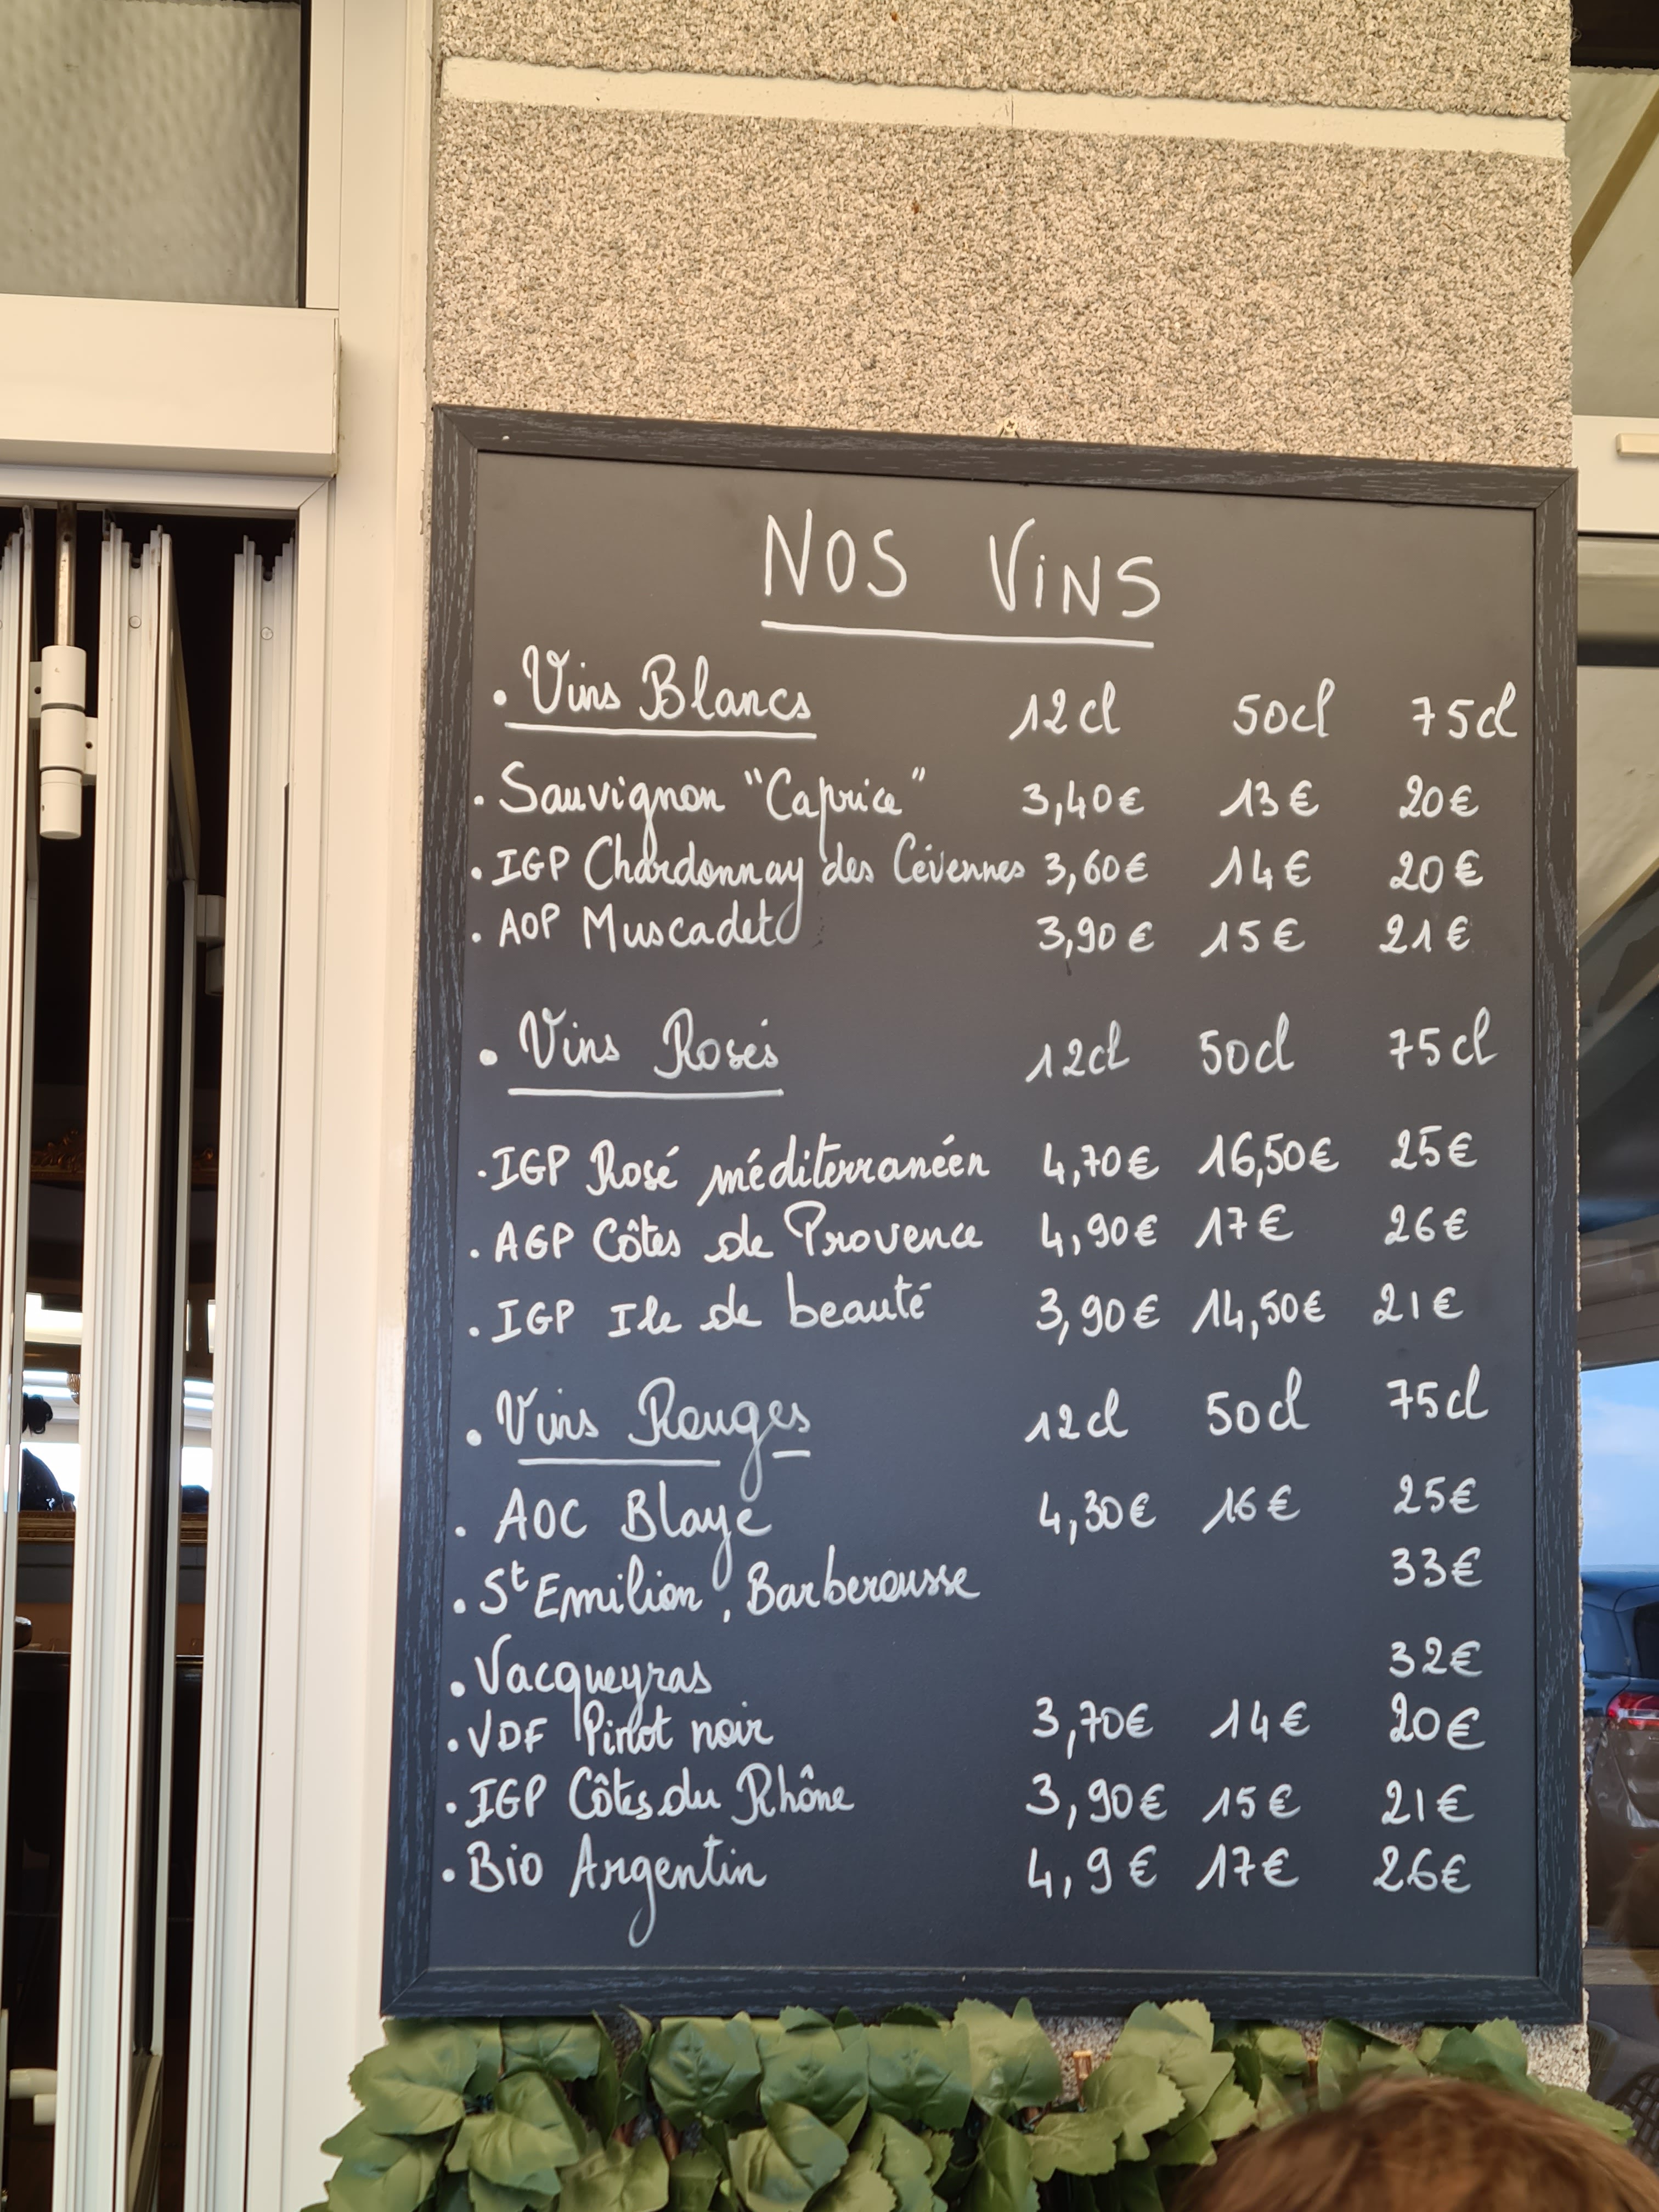 NOS VINS
. Vins Blancs 12cl 50cl 75cl
. Sauvignon "Caprice" 3,40€ 13€ 20€
. IGP Chardonnay des Cévennes 3,60€ 14€ 20€
. AOP Muscadet 3,90€ 15€ 21€
. Vins Rosés 12cl 50cl 75cl
. IGP Rosé méditerranéen 4,70€ 16,50€ 25€
. AGP Côtes de Provence 4,90€ 17€ 26€
. IGP Ile de beauté 3,90€ 14,50€ 21€
. Vins Rouges 12cl 50cl 75cl
. AOC Blaye 4,30€ 16€ 25€
. St Emilion, Barberousse 33€
. Vacqueyras 32€
. VDF Pinot noir 3,70€ 14€ 20€
. IGP Côtes du Rhône 3,90€ 15€ 21€
. Bio Argentin 4,9€ 17€ 26€